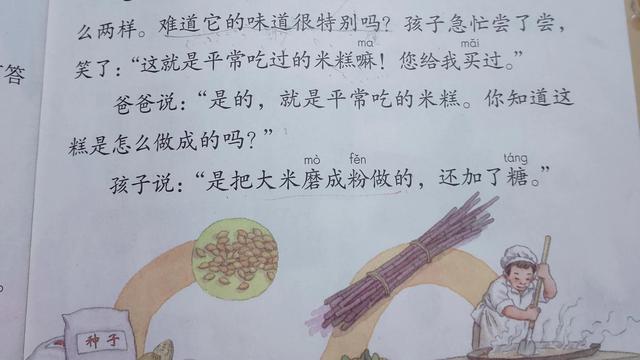 么两样。难道它的味道很特别吗？孩子急忙尝了尝，
ma mǎi
笑了：“这就是平常吃过的米糕嘛！您给我买过。”
答
爸爸说：“是的，就是平常吃的米糕。你知道这
糕是怎么做成的吗？”
mò fěn táng
孩子说：“是把大米磨成粉做的，还加了糖。”
种子